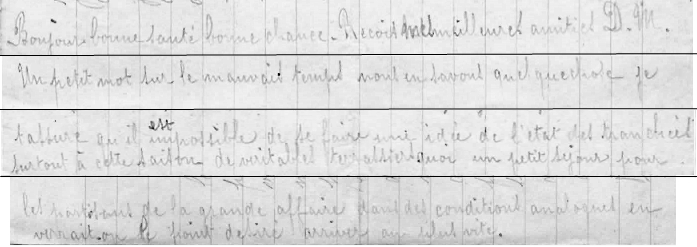 Bonjour bonne santé bonne chance. Recois mes meilleures amitiés D. M.
Un petit mot sur le mauvais temps nous en savons quelquechose je
t'assure qu'il est impossible de se faire une idée de l'état des tranchées
surtout à cette saison de veritables terrassiers quoi un petit séjour pour
les partisans de la grande affaire dans des conditions analogues en
verrait on le point désiré arriver au plus vite.